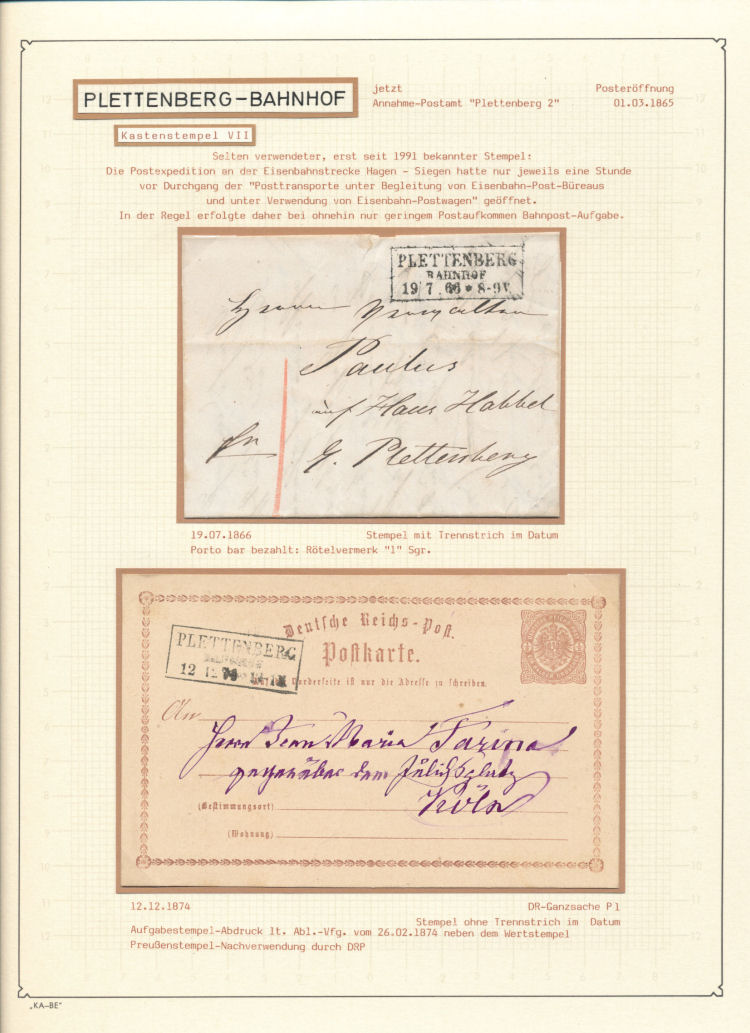 PLETTENBERG-BAHNHOF
jetzt
Annahme-Postamt "Plettenberg 2"
Posteröffnung
01.03.1865
Kastenstempel VII
Selten verwendeter, erst seit 1991 bekannter Stempel:
Die Postexpedition an der Eisenbahnstrecke Hagen - Siegen hatte nur jeweils eine Stunde
vor Durchgang der "Posttransporte unter Begleitung von Eisenbahn-Post-Büreaus
und unter Verwendung von Eisenbahn-Postwagen" geöffnet.
In der Regel erfolgte daher bei ohnehin nur geringem Postaufkommen Bahnpost-Aufgabe.
PLETTENBERG
BAHNHOF
19 7 66 * 8-9V.
Herrn Verwalter
Paulus
auf Haus Habbel
fr
Plettenberg
19.07.1866
Stempel mit Trennstrich im Datum
Porto bar bezahlt: Rötelvermerk "1" Sgr.
Deutsche Reichs-Post.
Postkarte.
PLETTENBERG
BAHNHOF
12 12 74
Vorderseite ist nur die Adresse zu schreiben.
An
Herrn Jean Maria Farina
gegenüber dem Jülichsplatz
Köln
(Bestimmungsort)
(Wohnung)
12.12.1874
DR-Ganzsache P1
Stempel ohne Trennstrich im Datum
Aufgabestempel-Abdruck lt. Abl.-Vfg. vom 26.02.1874 neben dem Wertstempel
Preußenstempel-Nachverwendung durch DRP
„KA-BE"